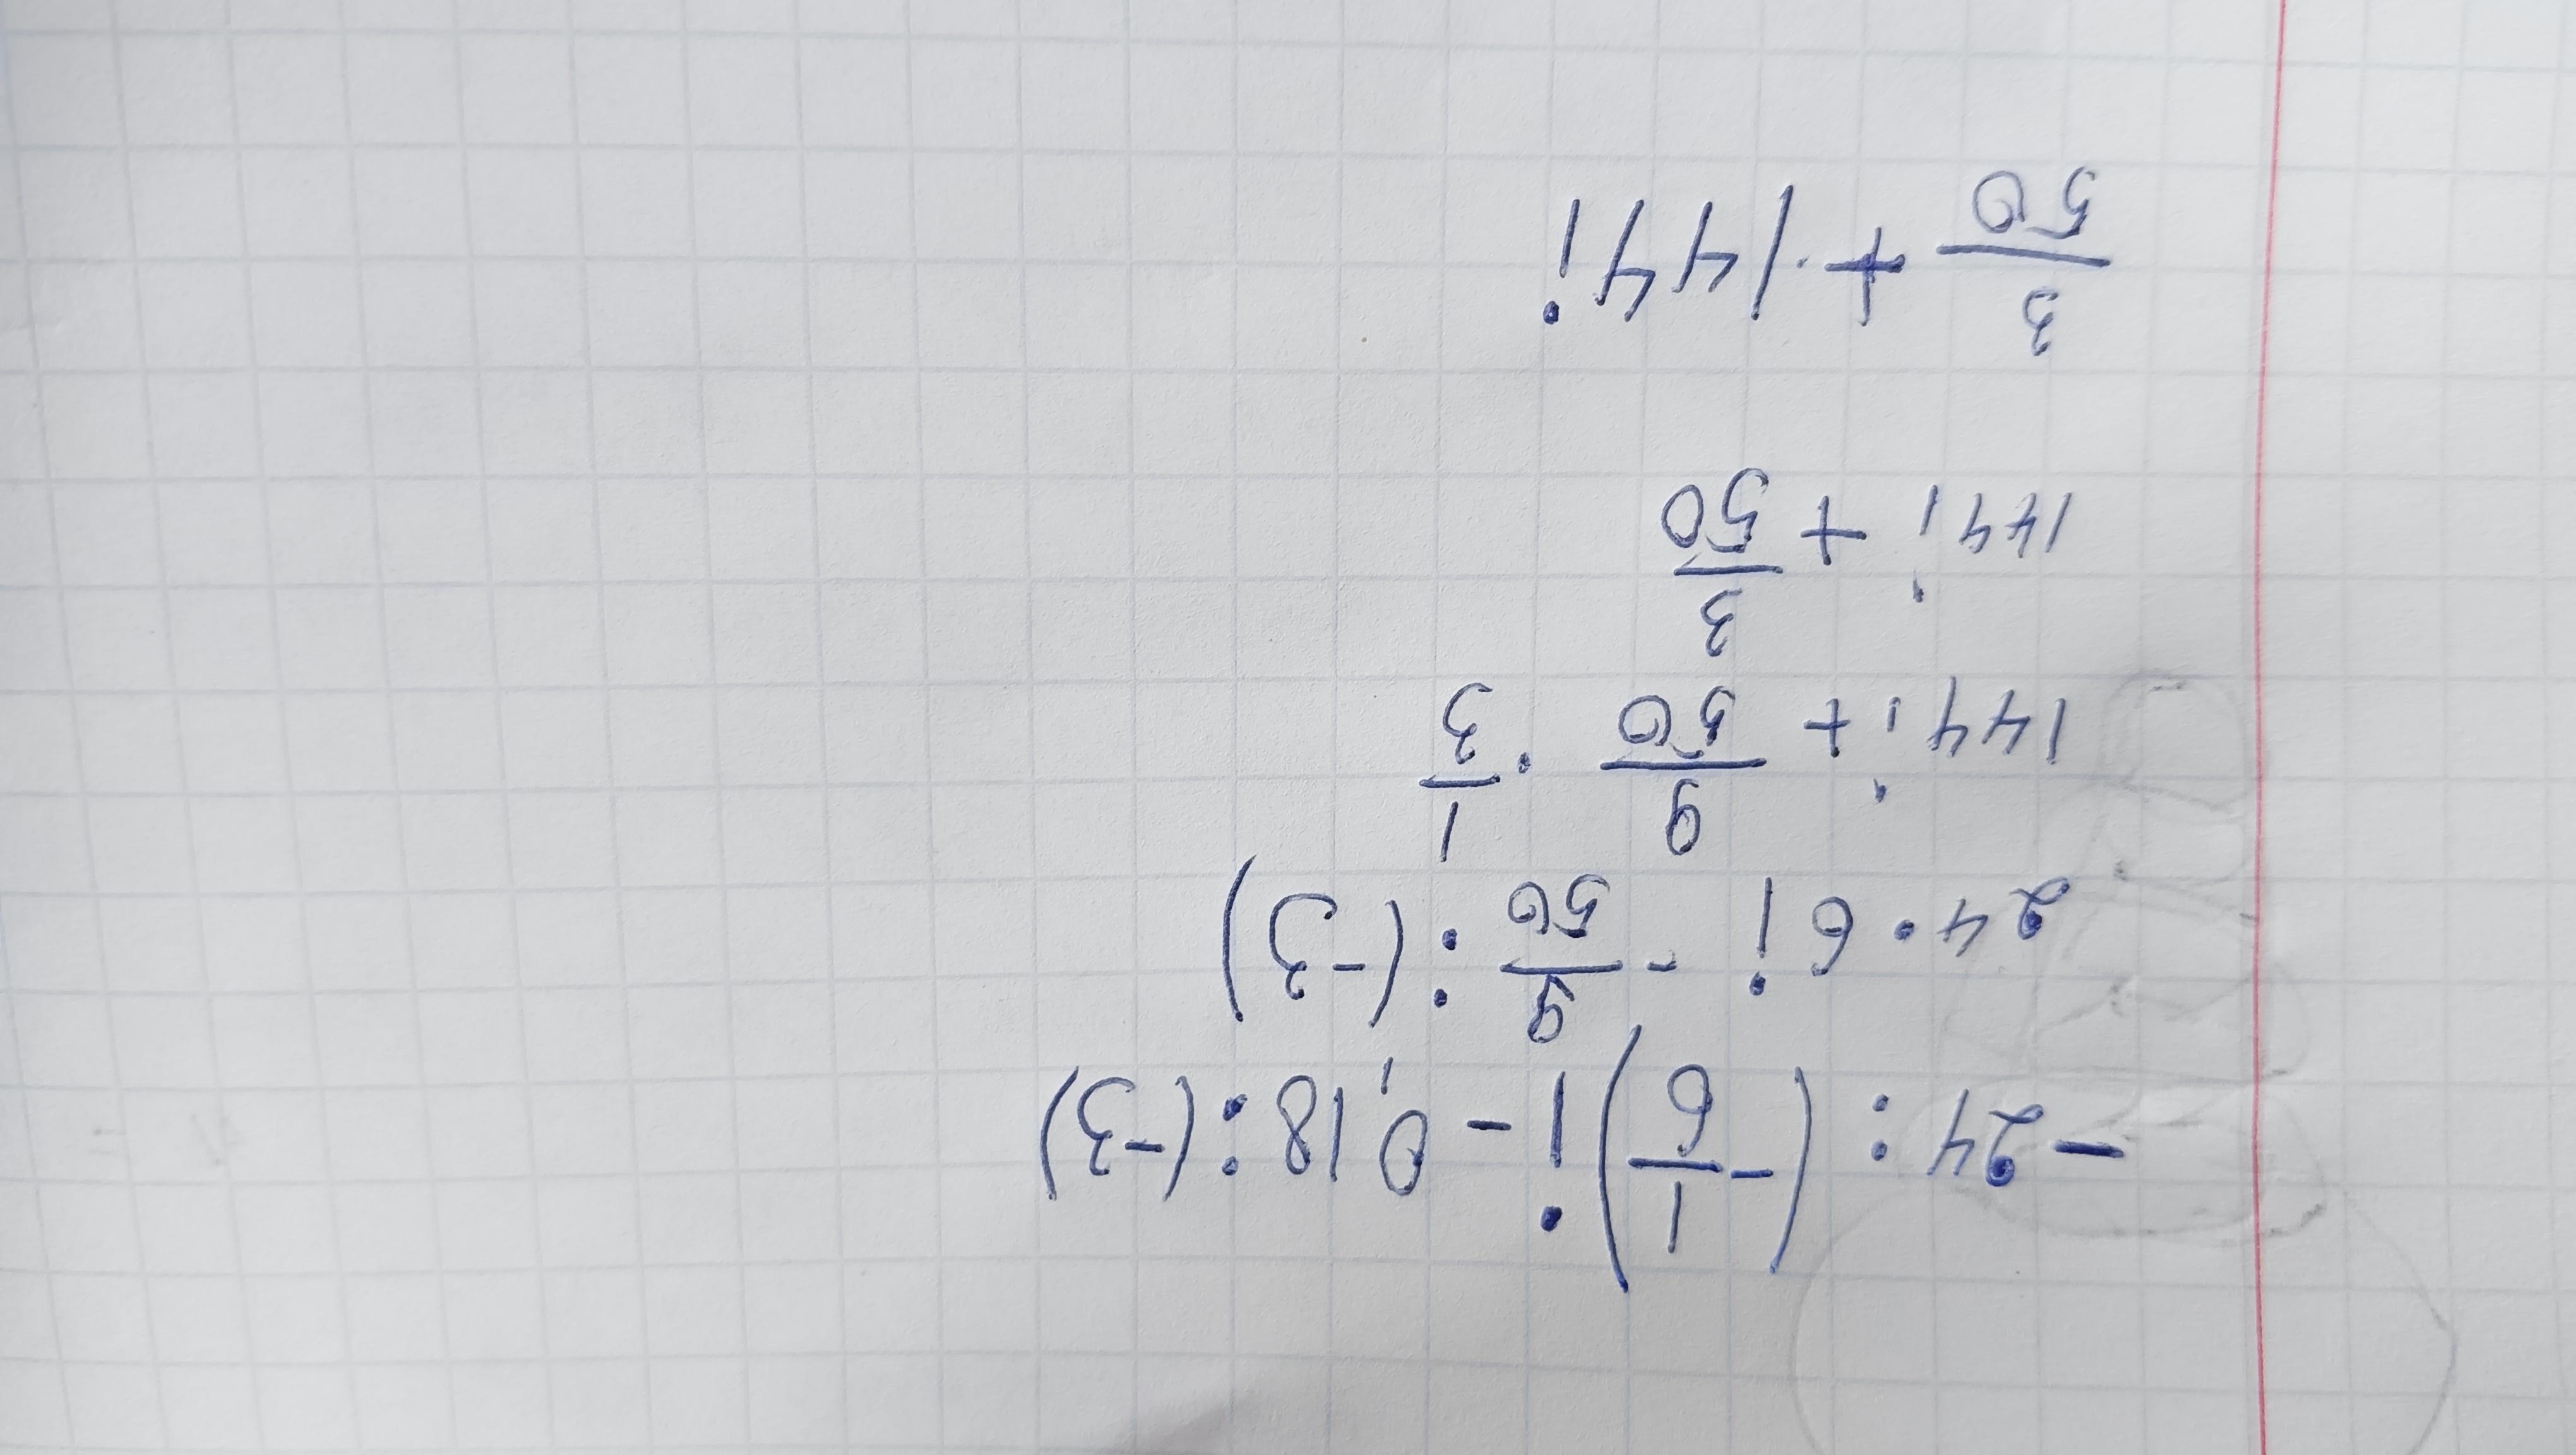 -24 : (-1/6)i - 0,18 : (-3)
24 · 6i - 9/50 : (-3)
144i + 9/50 · 1/3
144i + 3/50
3/50 + 144i